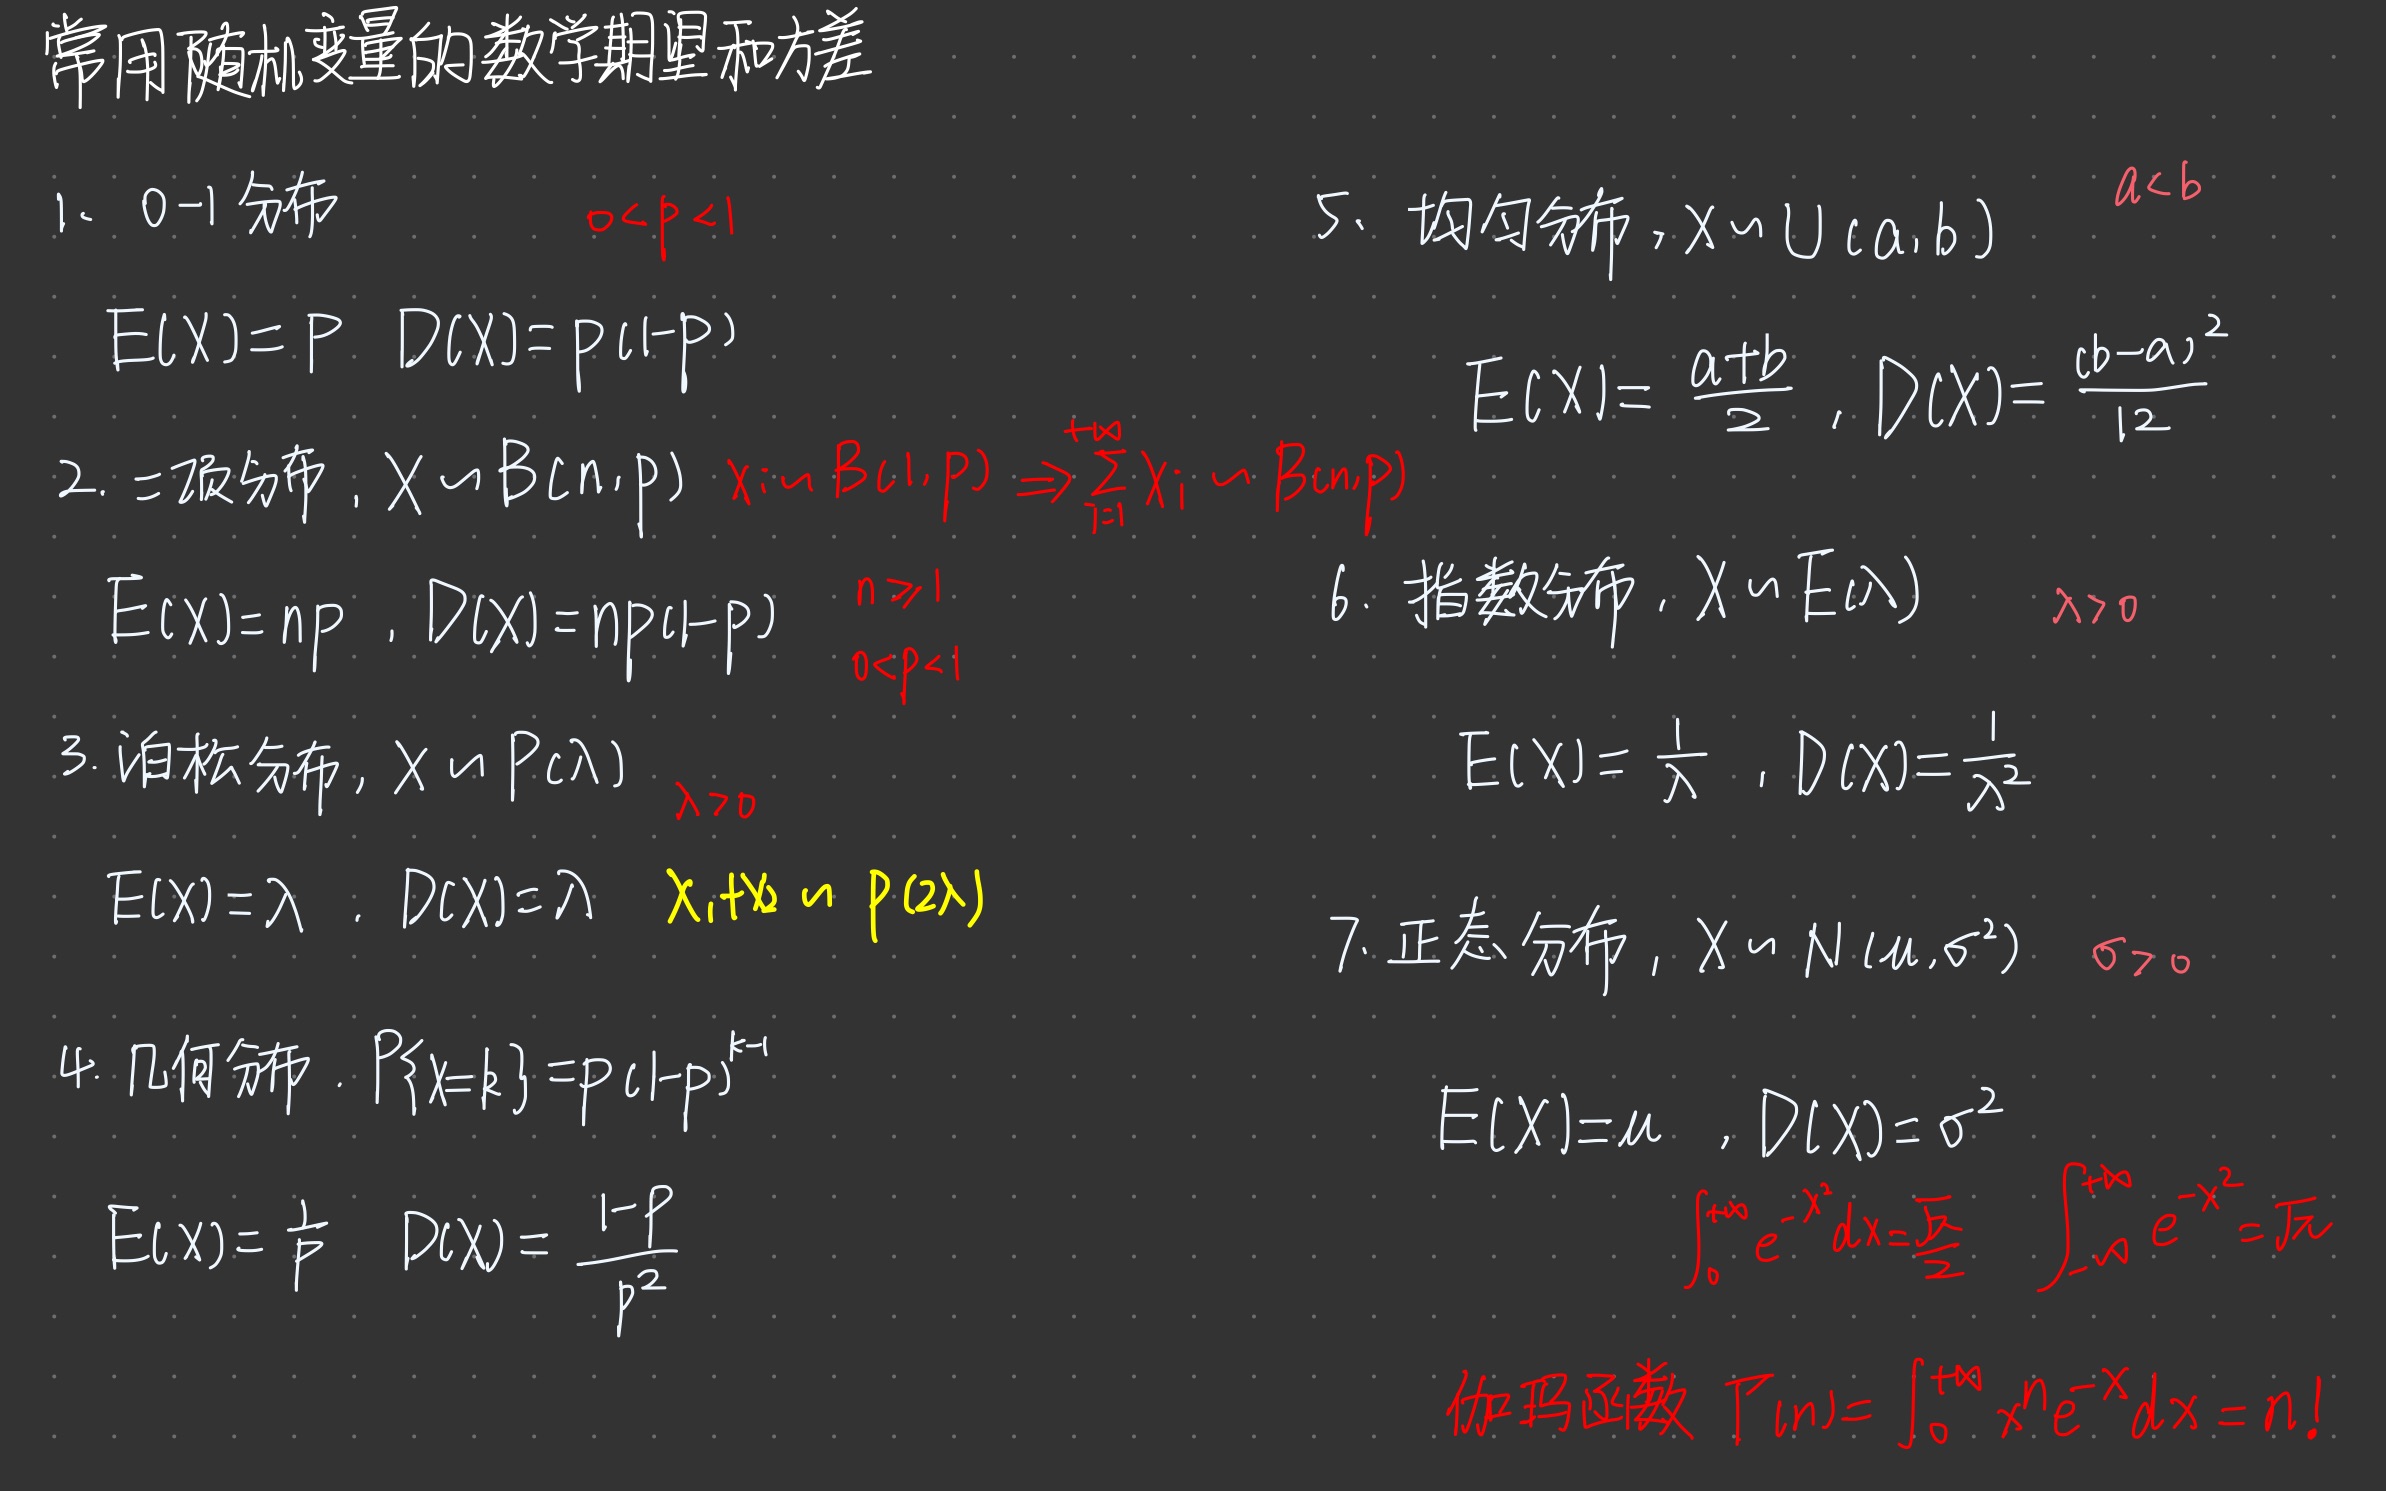 常用随机变量的数学期望和方差
1、 0-1分布 0<p<1
E(X)=P D(X)=p(1-p)
2. 二项分布, X~B(n,p) Xi~B(1,p) ⇒ ∑_{i=1}^{+∞} Xi ~ B(n,p)
E(X)=np , D(X)=np(1-p) n≥1
0<p<1
3. 泊松分布, X~P(λ) λ>0
E(X)=λ , D(X)=λ X₁+X₂~P(2λ)
4. 几何分布 . P{X=k}=p(1-p)^{k-1}
E(X)=1/p D(X)=(1-p)/p²
5、 均匀分布, X~U(a,b) a<b
E(X)=(a+b)/2 , D(X)=(b-a)²/12
6. 指数分布, X~E(λ) λ>0
E(X)=1/λ , D(X)=1/λ²
7. 正态分布, X~N(μ,σ²) σ>0
E(X)=μ , D(X)=σ²
∫_0^{+∞} e^{-x²}dx=√π/2 ∫_{-∞}^{+∞} e^{-x²}=√π
伽玛函数 Γ(n)=∫_0^{+∞} xⁿe^{-x}dx=n!